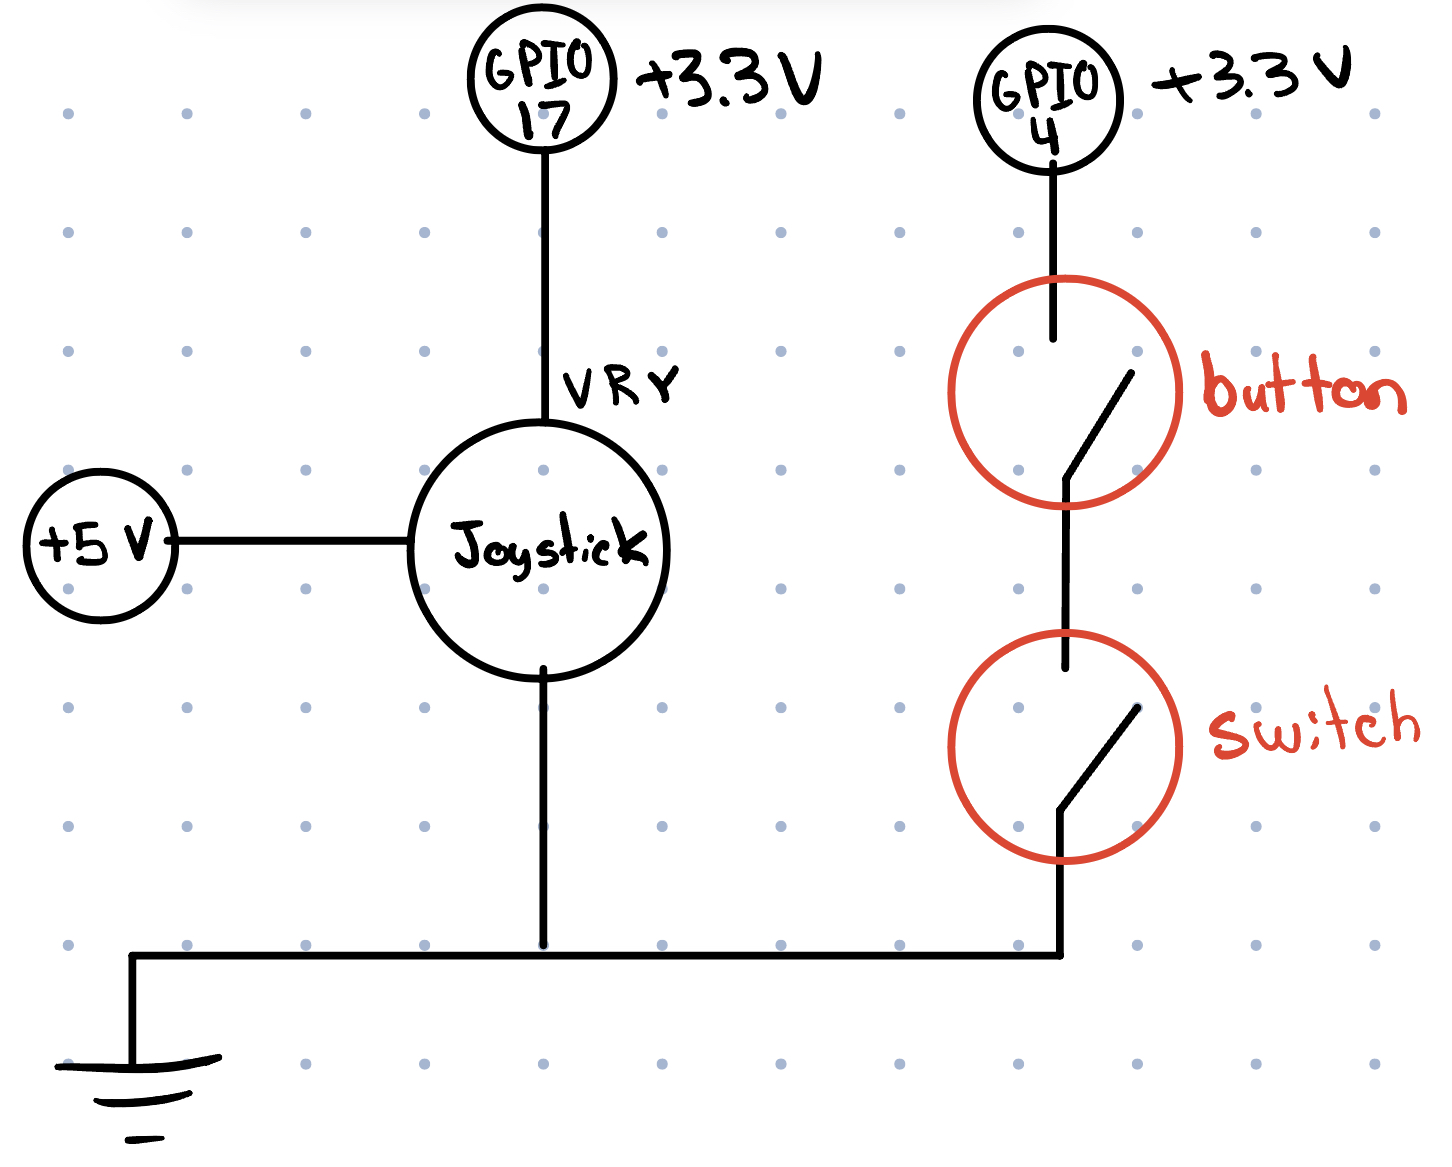 GPIO
17
+3.3V
GPIO
4
+3.3V
VRY
button
+5V
Joystick
switch